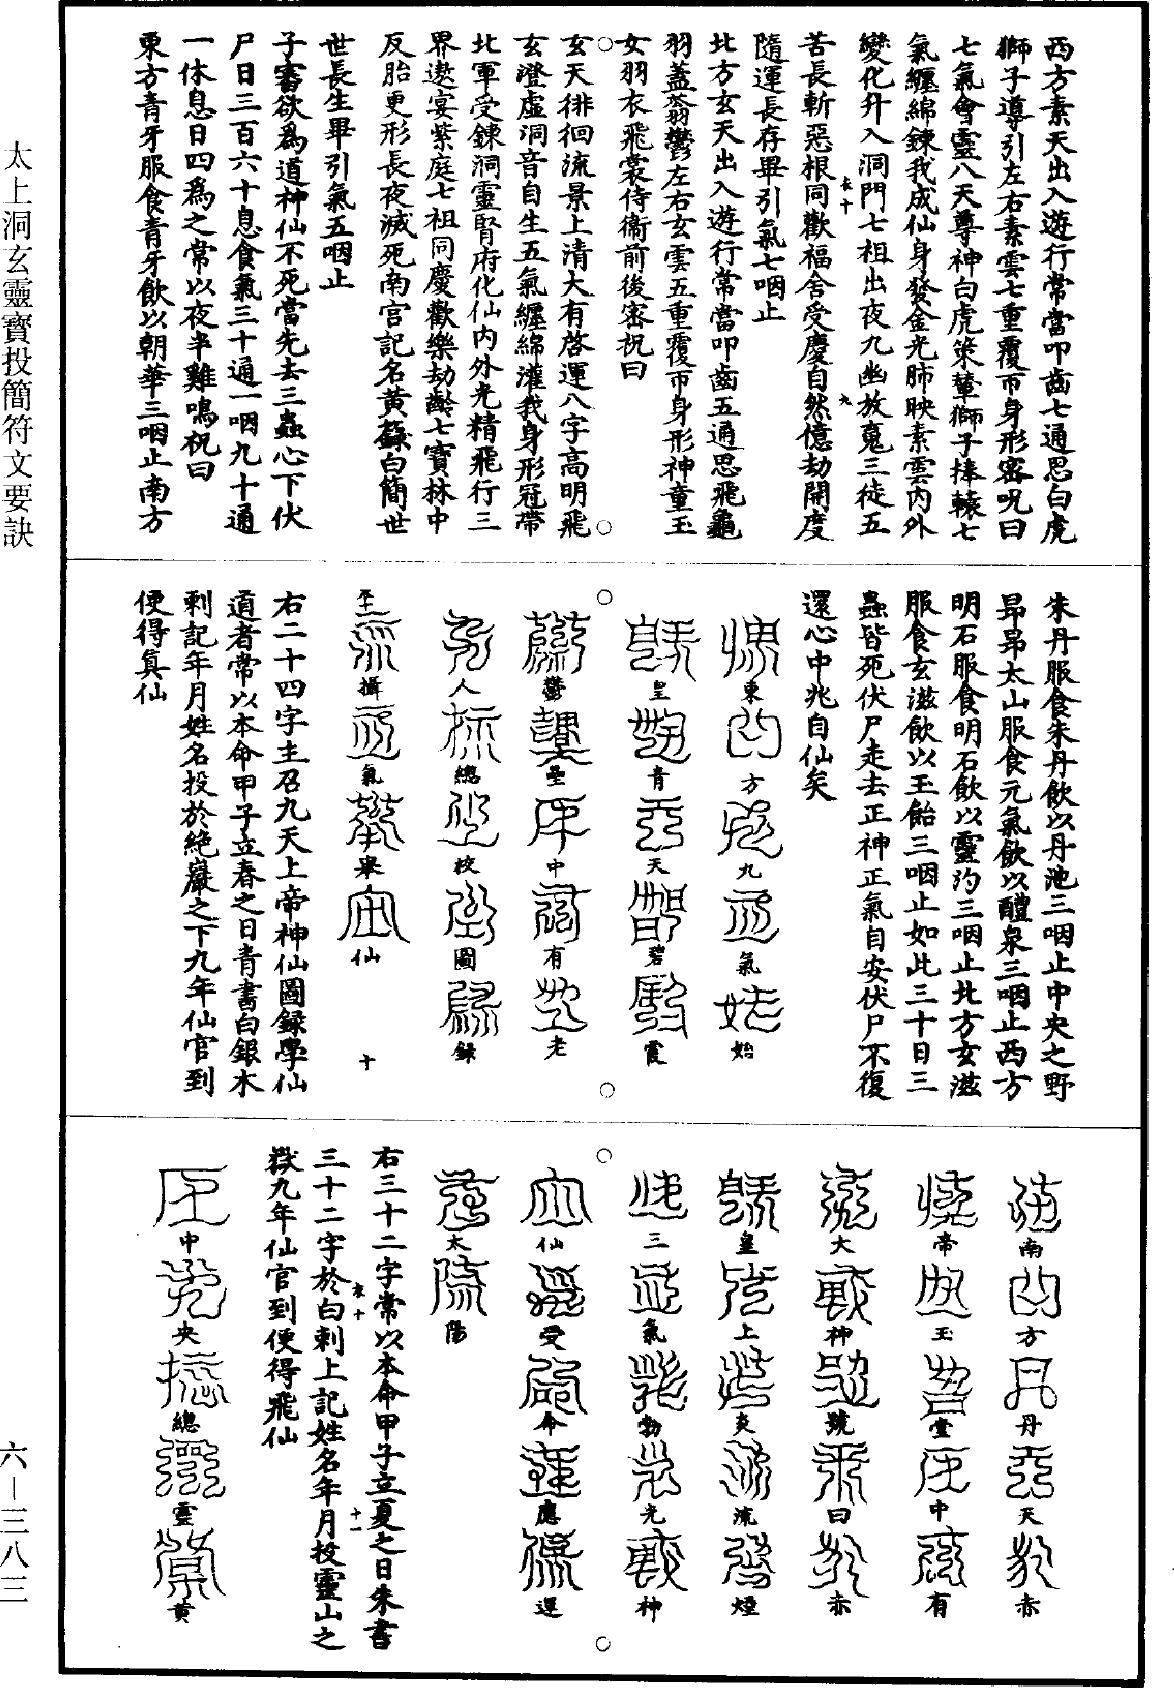 西方素天出入遊行常當叩齒七通思白虎
獅子導引左右素雲七重覆帀身形密呪曰
七氣會靈八天尊神白虎策輦獅子捧轅七
氣纏綿鍊我成仙身發金光肺映素雲內外
變化升入洞門七祖出夜九幽放魂三徒五
衣十 九
苦長斬惡根同歡福舍受慶自然億劫開度
隨運長存畢引氣七咽止
北方玄天出入遊行常當叩齒五通思飛龜
羽蓋蓊鬱左右玄雲五重覆帀身形神童玉
女羽衣飛裳侍衞前後密祝曰
玄天徘徊流景上清大有啓運八字高明飛
玄澄虛洞音自生五氣纏綿灌我身形冠帶
北軍受鍊洞靈腎府化仙內外光精飛行三
界遨宴紫庭七祖同慶歡樂劫齡七寶林中
反胎更形長夜滅死南宮記名黃籙白簡世
世長生畢引氣五咽止
子審欲爲道神仙不死當先去三蟲心下伏
尸日三百六十息食氣三十通一咽九十通
一休息日四爲之常以夜半雞鳴祝曰
東方青牙服食青牙飲以朝華三咽止南方
朱丹服食朱丹飲以丹池三咽止中央之野
昂昂太山服食元氣飲以醴泉三咽止西方
明石服食明石飲以靈汋三咽止北方玄滋
服食玄滋飲以玉飴三咽止如此三十日三
蟲皆死伏尸走去正神正氣自安伏尸不復
還心中兆自仙矣
東方九氣始
皇青天碧霞
鬱壘中有老
人總校圖錄
攝氣舉仙
十
右二十四字主召九天上帝神仙圖錄學仙
道者常以本命甲子立春之日青書白銀木
刺記年月姓名投於絕巖之下九年仙官到
便得眞仙
南方丹天赤
帝玉堂中有
大神號曰赤
皇上炎流煙
三氣勃光神
仙受命應運
太陽
右三十二字常以本命甲子立夏之日朱書
衣十 十一
三十二字於白刺上記姓名年月投靈山之
嶽九年仙官到便得飛仙
中央總靈黃
太上洞玄靈寶投簡符文要訣
六—三八三